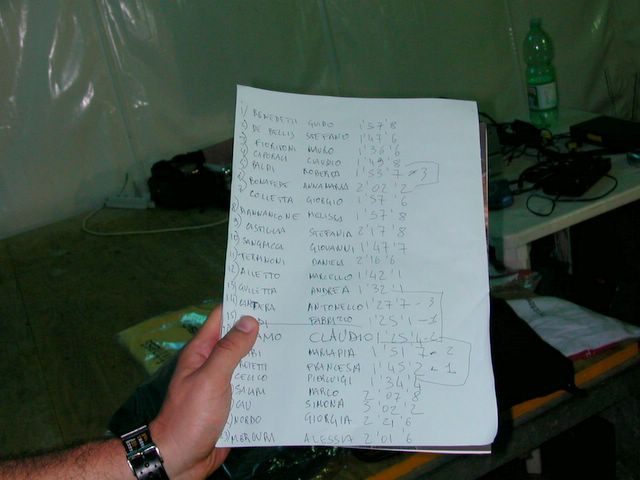 1) BENEDETTI GUIDO 1'57'8
2) DE BELLIS STEFANO 1'47'6
3) FIORITONI MAURO 1'36'6
4) CAPORALI CLAUDIO 1'49'8
5) BALDI ROBERTA 1'55'7 - 3
6) BONAFEDE ANNAMARIA 2'02'2
7) COLLETTA GIORGIO 1'57'6
8) DANNANCONE MELISSA 1'57'8
9) CASTIGLIA STEFANIA 2'17'8
10) SANGIACCA GIOVANNI 1'47'7
11) TERMINONI DANIELA 2'16'6
12) AILETTO MARCELLO 1'42'1
13) GULETTA ANDREA 1'32'1
14) ANTONELLO 1'27'7 - 3
15) FABRIZIO 1'25'1 - 1
AMO CLAUDIO 1'25'4 - 2
ARI MARIAPIA 1'51'7 - 2
ETTI FRANCESCA 1'45'2 - 1
CELLO PIERLUIGI 1'34'4
SALARI MARCO 2'07'8
SIMONA 3'02'2
NORDO GIORGIA 2'21'6
MERCURI ALESSIA 2'01'6